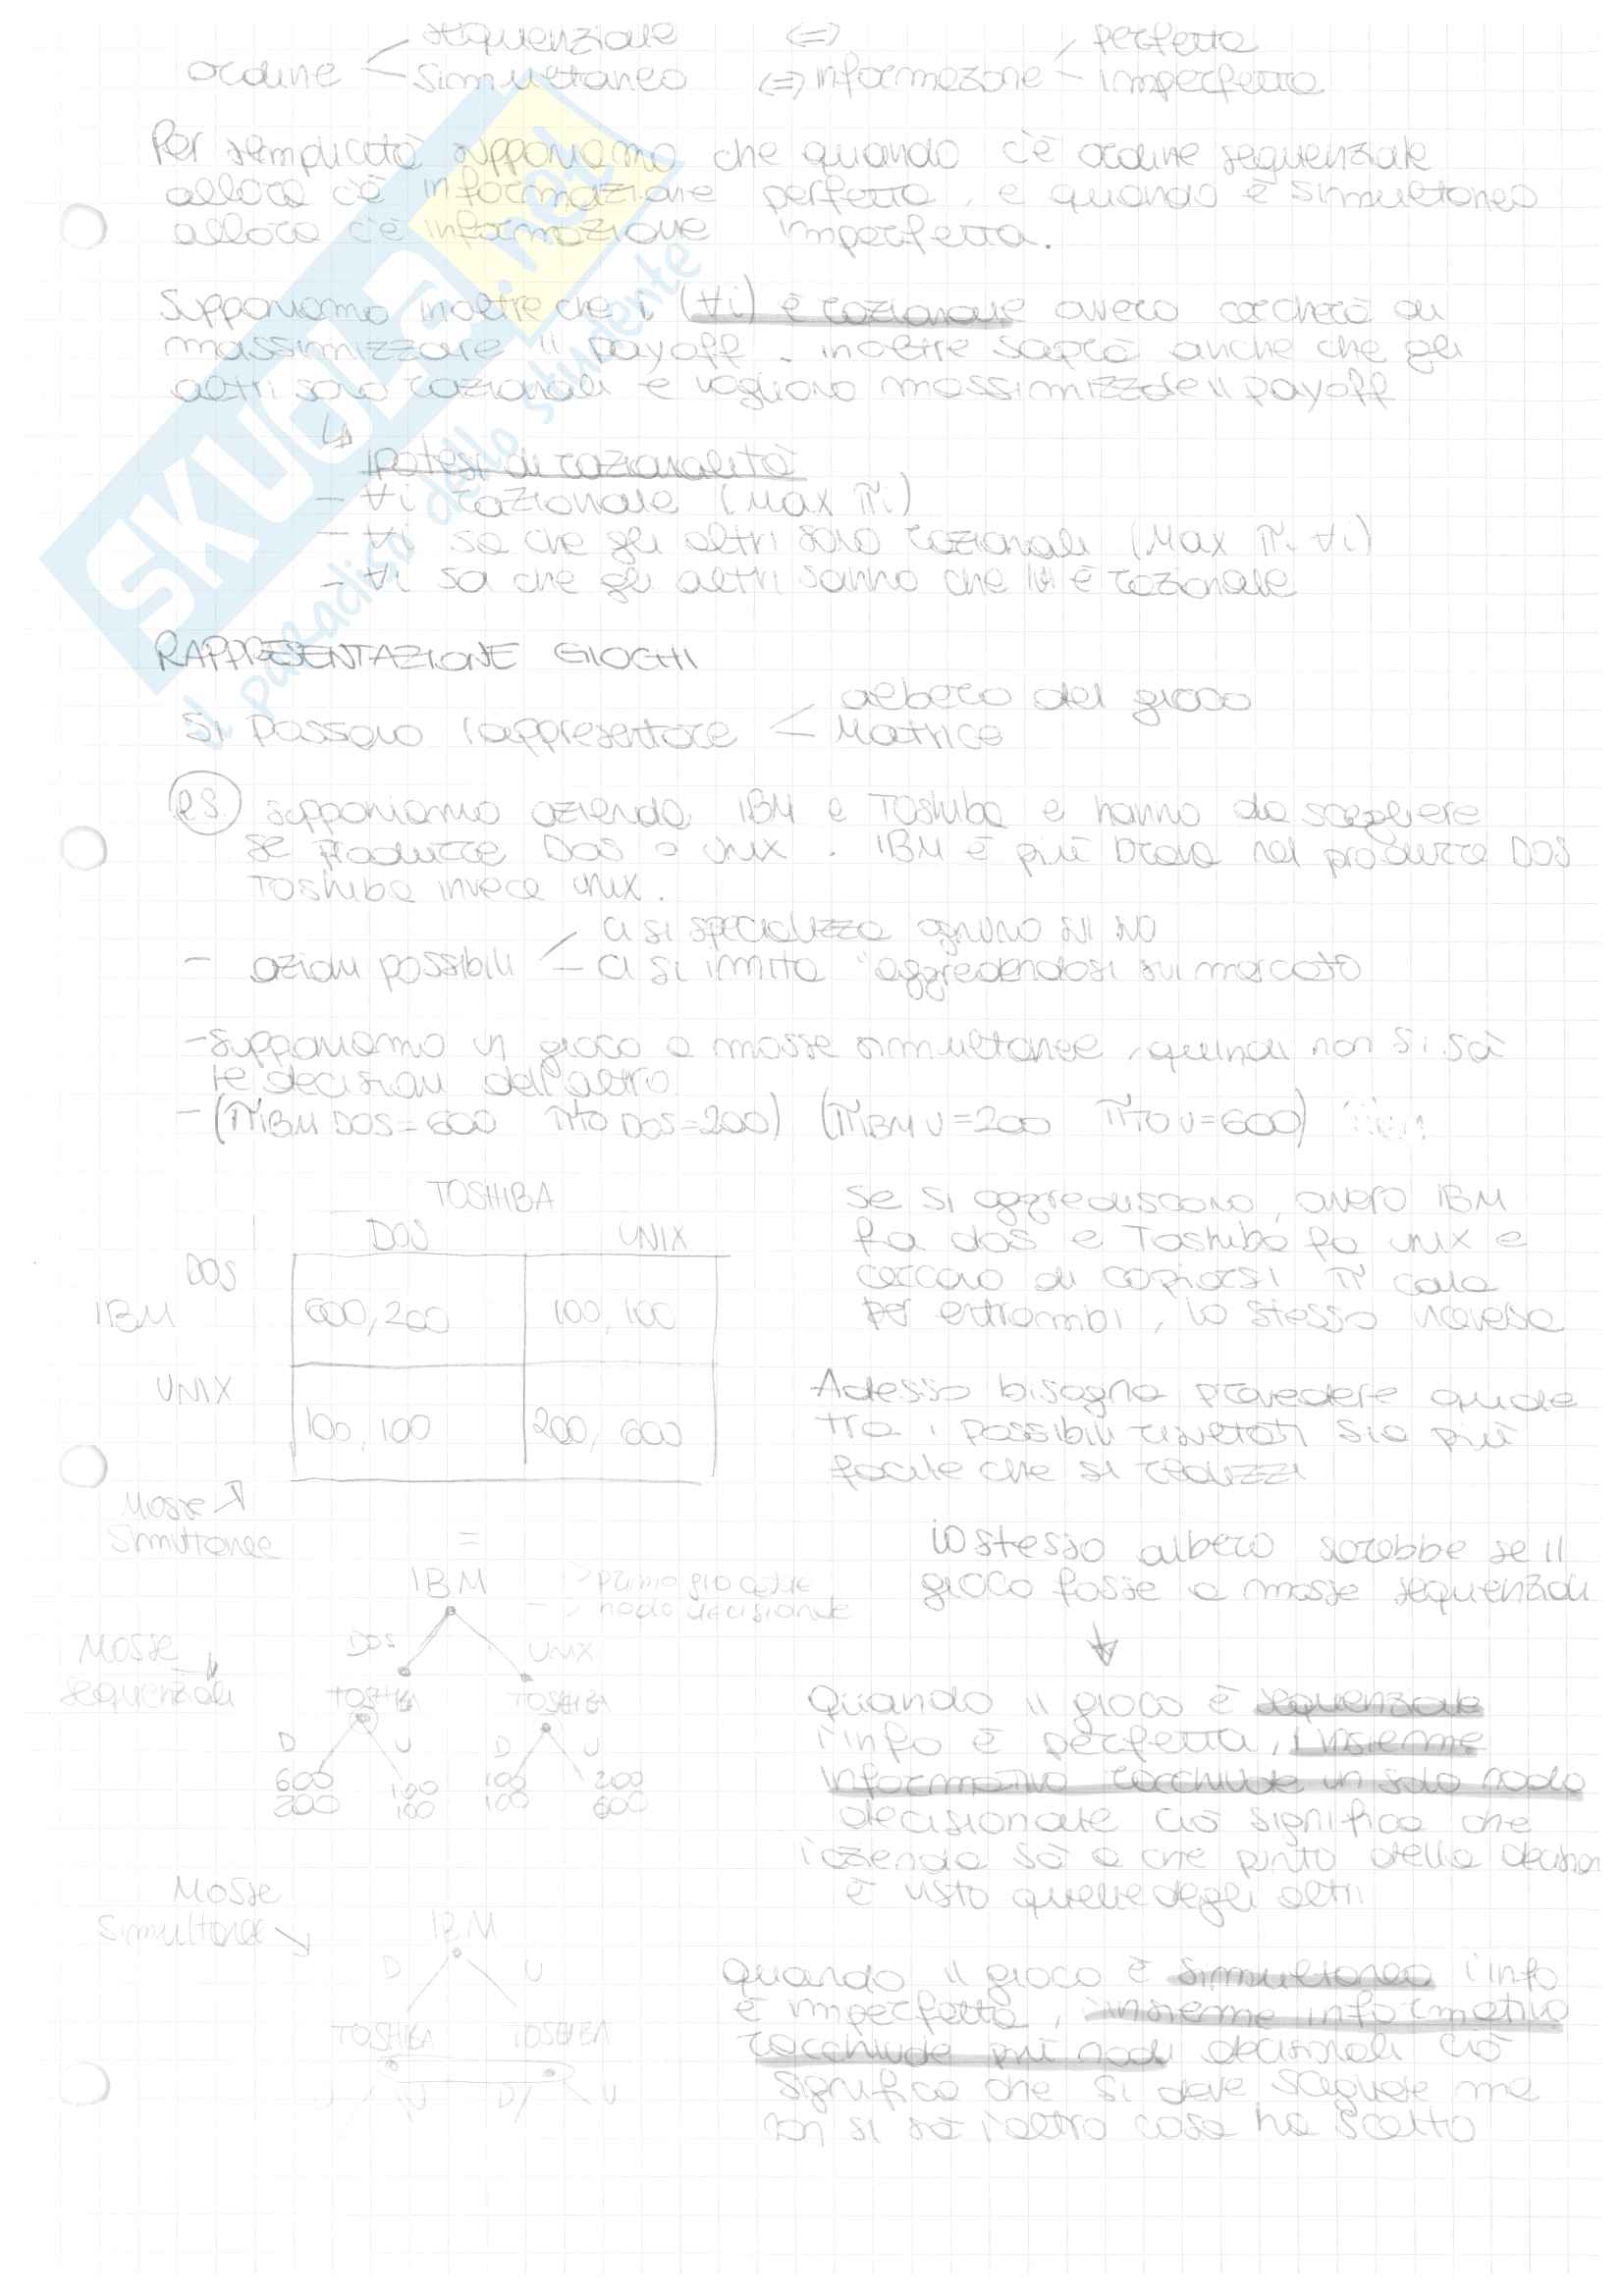 sequenziale ⇔ perfetta
ordine < simultaneo ⇔ informazione - imperfetta
Per semplicità supponiamo che quando c'è ordine sequenziale
allora c'è informazione perfetta, e quando è simultaneo
allora c'è informazione imperfetta.
Supponiamo inoltre che i (∀i) è razionale ovvero cercherà di
massimizzare il payoff. inoltre saprà anche che gli
altri sono razionali e vogliono massimizzare il payoff
↳
ipotesi di razionalità
- ∀i razionale (Max πi)
- ∀i sa che gli altri sono razionali (Max πi ∀i)
- ∀i sa che gli altri sanno che è razionale
RAPPRESENTAZIONE GIOCHI
albero del gioco
Si possono rappresentare < Matrice
es. supponiamo azienda IBM e Toshiba e hanno da scegliere
se produrre DOS o UNIX. IBM è più brava nel produrre DOS
Toshiba invece UNIX.
ci si specializza ognuno sul suo
- azioni possibili < ci si imita "aggredendosi sul mercato
- Supponiamo un gioco a mosse simultanee, quindi non si sà
le decisioni dell'altro
- (πIBM DOS = 600 πTO DOS = 200) (πIBM U = 200 πTO U = 600)
TOSHIBA
DOS UNIX
DOS
IBM 600, 200 100, 100
UNIX
100, 100 200, 600
se si aggrediscono, ovvero IBM
fa dos e Toshiba fa unix e
cercano di copiarsi π cala
per entrambi, lo stesso viceversa
Adesso bisogna prevedere quale
tra i possibili risultati sia più
facile che si realizzi
Mosse
Simultanee
=
IBM → primo giocatore
→ nodo decisionale
DOS UNIX
Mosse
sequenziali
TOSHIBA TOSHIBA
D U D U
600 100 100 200
200 100 100 600
lo stesso albero sarebbe se il
gioco fosse a mosse sequenziali
↓
Quando il gioco è sequenziale
l'info è perfetta, l'insieme
informativo racchiude un solo nodo
decisionale ciò significa che
l'azienda sà a che punto della decision
è visto quelle degli altri
Mosse
Simultanee
IBM
D U
TOSHIBA TOSHIBA
U U D U
quando il gioco è simultaneo l'info
è imperfetta, l'insieme informativo
racchiude più nodi decisionali ciò
significa che si deve scegliere ma
non si sà l'altro cosa ha scelto
SKUOLA.net
il paradiso dello studente